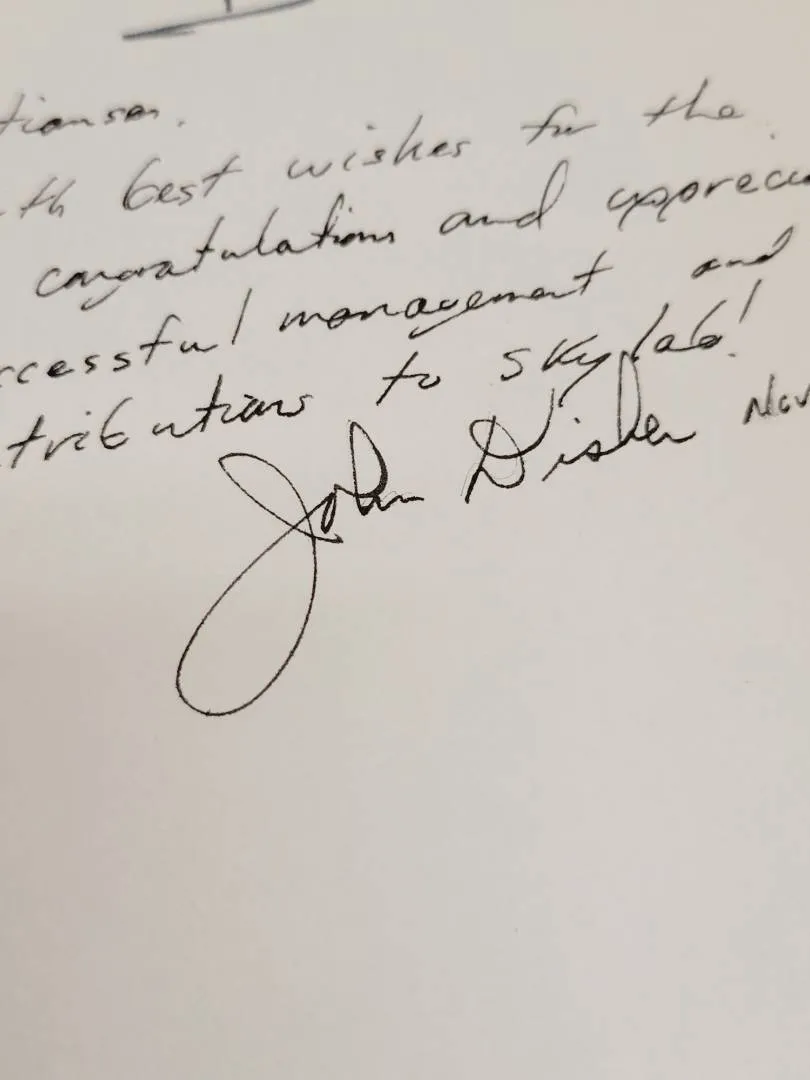 tianson.
th best wishes for the
congratulations and apprecia
ccessful management and
tributions to Skylab!
John Disher Nov